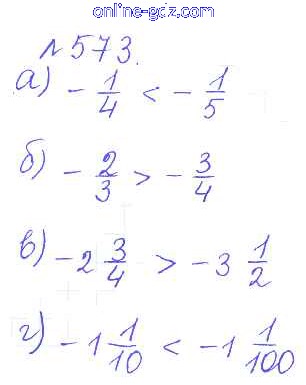 online-gdz.com
№573.
а) -1/4 < -1/5
б) -2/3 > -3/4
в) -2 3/4 > -3 1/2
г) -1 1/10 < -1 1/100